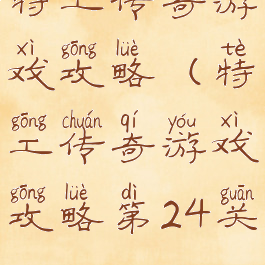 特工传奇游
xì gōng lüè tè
戏攻略（特
gōng chuán qí yóu xì
工传奇游戏
gōng lüè dì guān
攻略第24关